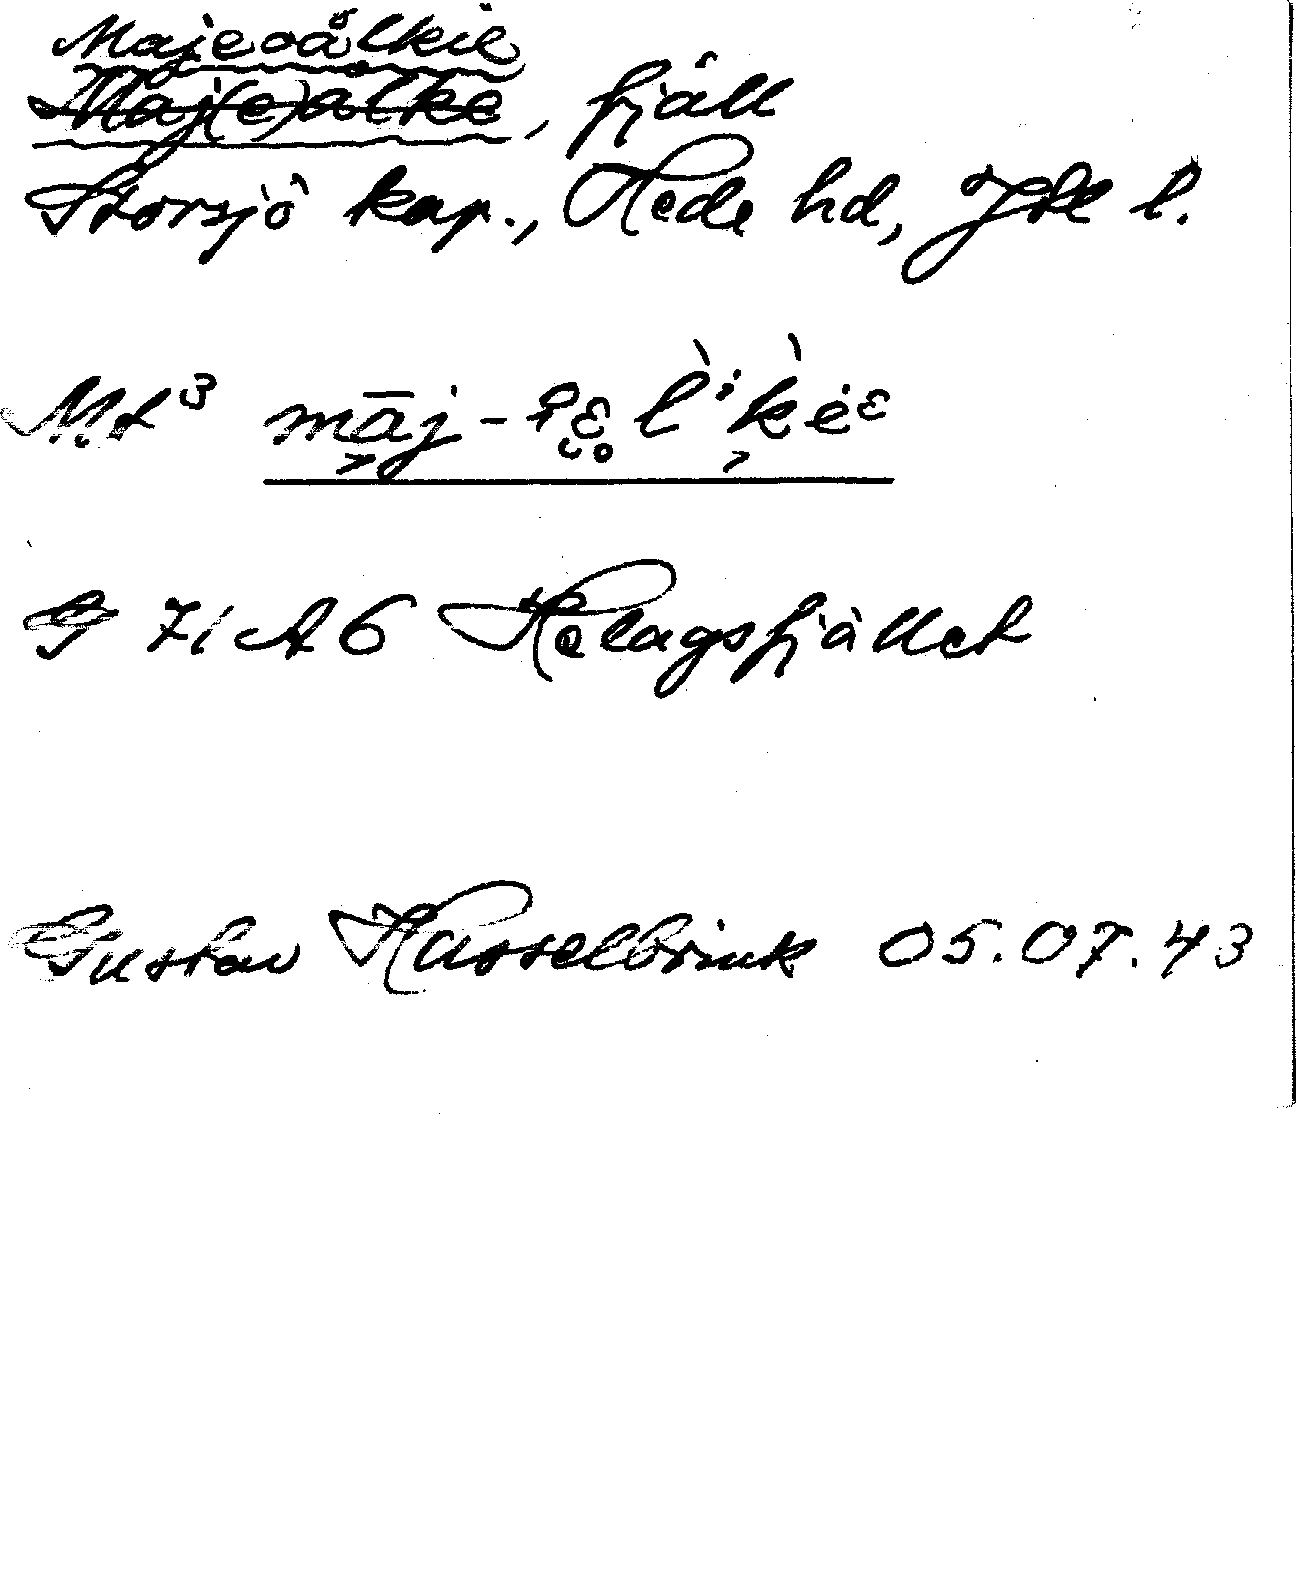 Majeoålkie
Maj(e)ålke, fjäll
Storsjö kap., Hede hd, Jtl l.
Mt³
G 71 A6 Helagsfjället
Gustav Hasselbrink 05.07.43